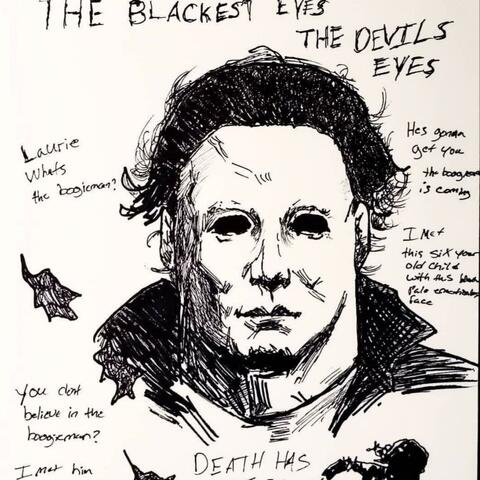 THE BLACKEST EYES
THE DEVILS
EYES
Laurie
Whats
the boogieman?
Hes gonna
get you
the
is coming
I Met
this six year
old child
with this
pale
face
You dont
believe in the
boogieman?
I met him
DEATH HAS